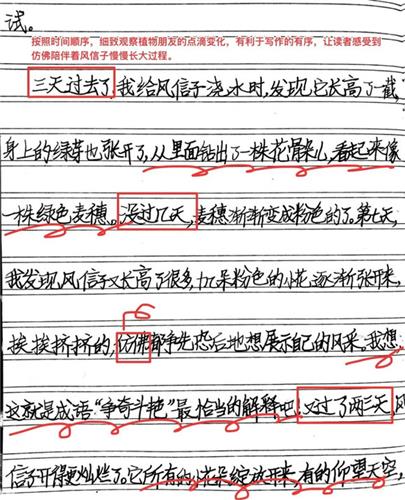 试。
按照时间顺序，细致观察植物朋友的点滴变化，有利于写作的有序，让读者感受到
仿佛陪伴着风信子慢慢长大过程。
三天过去了，我给风信子浇水时，发现它长高了一截，
身上的绿芽也张开了，从里面钻出了一株花骨朵儿，看起来像
一株绿色麦穗。没过几天，麦穗渐渐变成粉色的了。第七天，
我发现风信子又长高了很多，几朵粉色的小花逐渐张开来，
挨挨挤挤的，仿佛都争先恐后地想展示自己的风采。我想：
这就是成语“争奇斗艳”最恰当的解释吧！又过了两三天，风
信子开得更灿烂了。它所有的小花朵绽放开来，有的仰望天空，